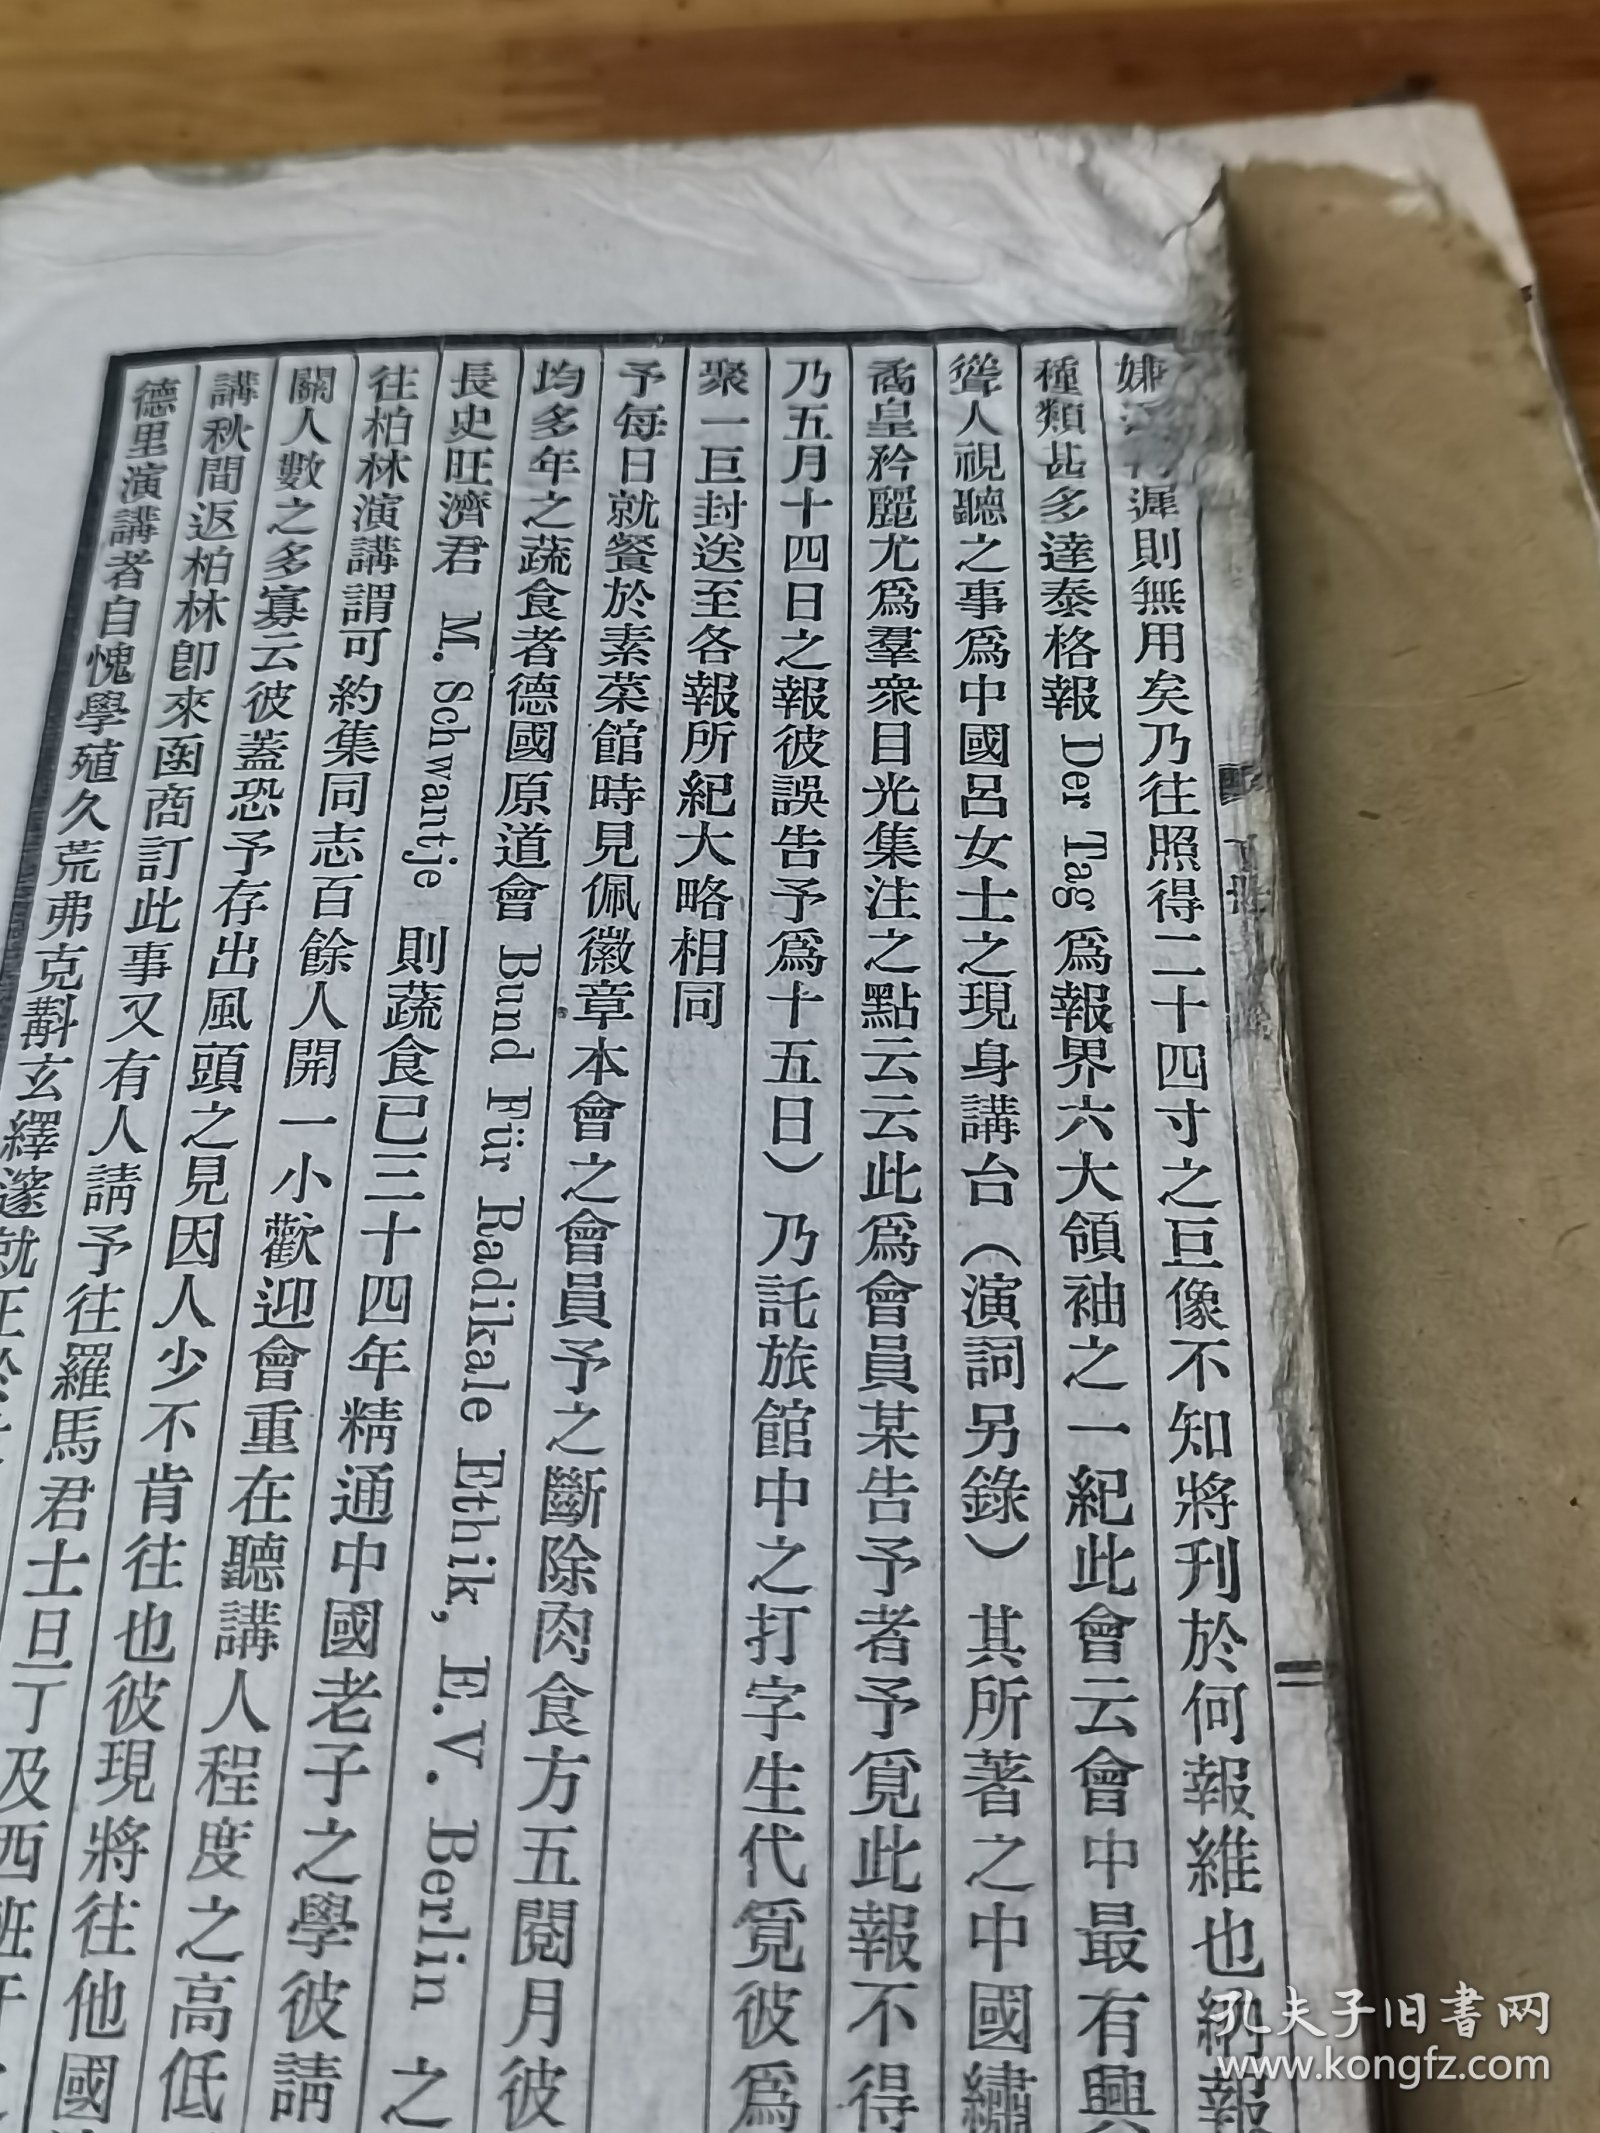 嫌遲則無用矣乃往照得二十四寸之巨像不知將刊於何報維也納報
種類甚多達泰格報 Der Tag 爲報界六大領袖之一紀此會云會中最有興
聳人視聽之事爲中國呂女士之現身講台（演詞另錄）其所著之中國繡
喬皇矜麗尤爲羣衆目光集注之點云云此爲會員某告予者予覓此報不得
乃五月十四日之報彼誤告予爲十五日）乃託旅館中之打字生代覓彼爲
聚一巨封送至各報所紀大略相同
予每日就餐於素菜館時見佩徽章本會之會員予之斷除肉食方五閱月彼
均多年之蔬食者德國原道會 Bund Für Radikale Ethik, E.V. Berlin 之
長史旺濟君 M. Schwantje 則蔬食已三十四年精通中國老子之學彼請
往柏林演講謂可約集同志百餘人開一小歡迎會重在聽講人程度之高低
關人數之多寡云彼蓋恐予存出風頭之見因人少不肯往也彼現將往他國
講秋間返柏林卽來函商訂此事又有人請予往羅馬君士旦丁及西班牙
德里演講者自愧學殖久荒弗克斠玄繹邃就正於
二
孔夫子旧書网
www.kongfz.com